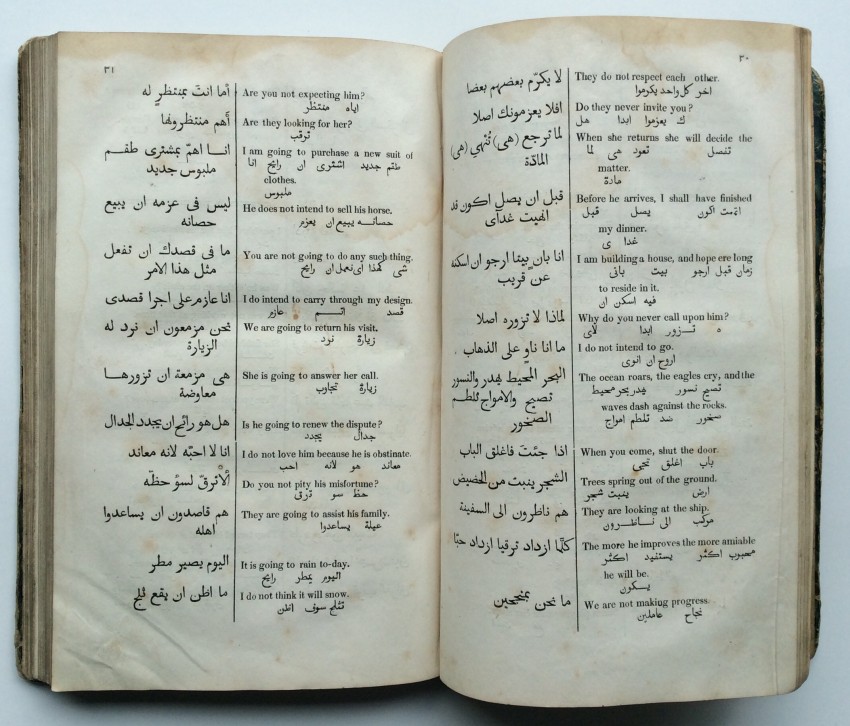 ٣٠
They do not respect each other.
اخر كل واحد يكرموا
Do they never invite you?
ك يعزموا ابدا هل
When she returns she will decide the
تفصل تعود هى لما
matter.
مادة
Before he arrives, I shall have finished
اتممت اكون يصل قبل
my dinner.
غدا ى
I am building a house, and hope ere long
زمان قبل ارجو بيت بانى
to reside in it.
فيه اسكن ان
Why do you never call upon him?
ه تزور ابدا لاى
I do not intend to go.
اروح ان انوى
The ocean roars, the eagles cry, and the
تصيح نسور يهدر بحر محيط
waves dash against the rocks.
صخور ضد تلطم امواج
When you come, shut the door.
باب اغلق تجى
Trees spring out of the ground.
ارض ينبت شجر
They are looking at the ship.
مركب الى ناظرون
The more he improves the more amiable
محبوب اكثر يستفيد اكثر
he will be.
يكون
We are not making progress.
نجاح عاملين
لا يكرّم بعضهم بعضا
افلا يعزمونك اصلا
لما ترجع (هى) تُنْهي (هى)
المادّة
قبل ان يصل اكون قد
انهيت غدآى
انا بان بيتا ارجو ان اسكنه
عن قريب
لماذا لا تزوره اصلا
ما انا ناوٍ على الذهاب
البحر المحيط يهدر والنسور
تصيح والامواج تلطم
الصخور
اذا جئتَ فاغلق الباب
الشجر ينبت من الحضيض
هم ناظرون الى السفينة
كلّما ازداد ترقيا ازداد حبّا
ما نحن بمنجحين
٣١
Are you not expecting him?
اياه منتظر
Are they looking for her?
ترقب
I am going to purchase a new suit of
طقم جديد اشترى ان رايح انا
clothes.
ملبوس
He does not intend to sell his horse.
حصانه يبيع ان يعزم
You are not going to do any such thing.
شى كهذا اى تعمل ان رايح
I do intend to carry through my design.
قصد اتم عازم
We are going to return his visit.
زيارة نرد
She is going to answer her call.
زيارة تجاوب
Is he going to renew the dispute?
جدال يجدد
I do not love him because he is obstinate.
معاند هو لانه احب
Do you not pity his misfortune?
حظ سو ترقى
They are going to assist his family.
عيلة يساعدوا
It is going to rain to-day.
اليوم يمطر رايح
I do not think it will snow.
تثلج سوف اظن
أما انتَ بمنتظرٍ له
أهم منتظرونها
انا اهمّ بمشترى طقم
ملبوس جديد
ليس فى عزمه ان يبيع
حصانه
ما فى قصدك ان تفعل
مثل هذا الامر
انا عازم على اجرا قصدى
نحن مزمعون ان نرد له
الزيارة
هى مزمعة ان تزورها
معاوضة
هل هو رائح ان يجدد الجدال
انا لا احبّه لانه معاند
ألا ترقّ لسوُ حظّه
هم قاصدون ان يساعدوا
اهله
اليوم يصير مطر
ما اظن ان يقع ثلج